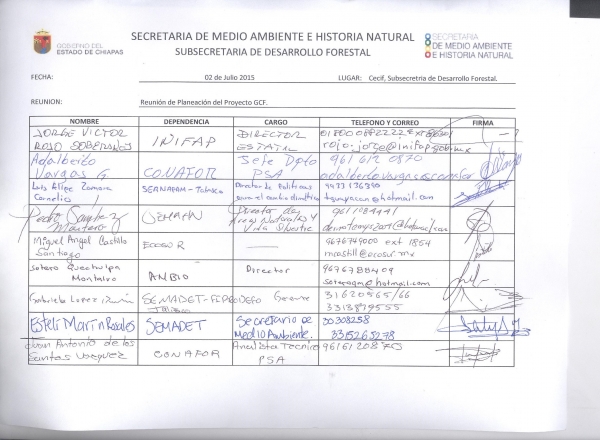 GOBIERNO DEL
ESTADO DE CHIAPAS
SECRETARIA DE MEDIO AMBIENTE E HISTORIA NATURAL
SUBSECRETARIA DE DESARROLLO FORESTAL
SECRETARIA
DE MEDIO AMBIENTE
E HISTORIA NATURAL
FECHA: 02 de Julio 2015 LUGAR: Cecif, Subsecretria de Desarrollo Forestal.
REUNION: Reunión de Planeación del Proyecto GCF.
NOMBRE DEPENDENCIA CARGO TELEFONO Y CORREO FIRMA
JORGE VICTOR
ROJO SOBERANES
INIFAP
DIRECTOR
ESTATAL
rojo.jorge@inifap.gob.mx
Adalberto
Vargas G.
CONAFOR
Jefe Dpto
PSA
961 612 0870
Luis Felipe Zamora
Cornelio
SERNAPAM-Tabasco
Director de Políticas
para el cambio climático
9933136390
Pedro Sanchez
Montero
Director de
Areas Naturales y
Vida Silvestre
Miguel Angel Castillo
Santiago
ECOSUR
9676749000 ext 1854
mcastill@ecosur.mx
Sotero Quechulpa
Montalvo
AMBIO
Director
9676788409
Gabriela Lopez
SEMADET-FIPRODEFO
Jalisco
Gerente
31620965/66
3313879555
Estelí Martín Rosales
SEMADET
Secretario de
Medio Ambiente.
30308258
3315265278
Juan Antonio de los
Santos Vazquez
CONAFOR
Analista Tecnico
PSA